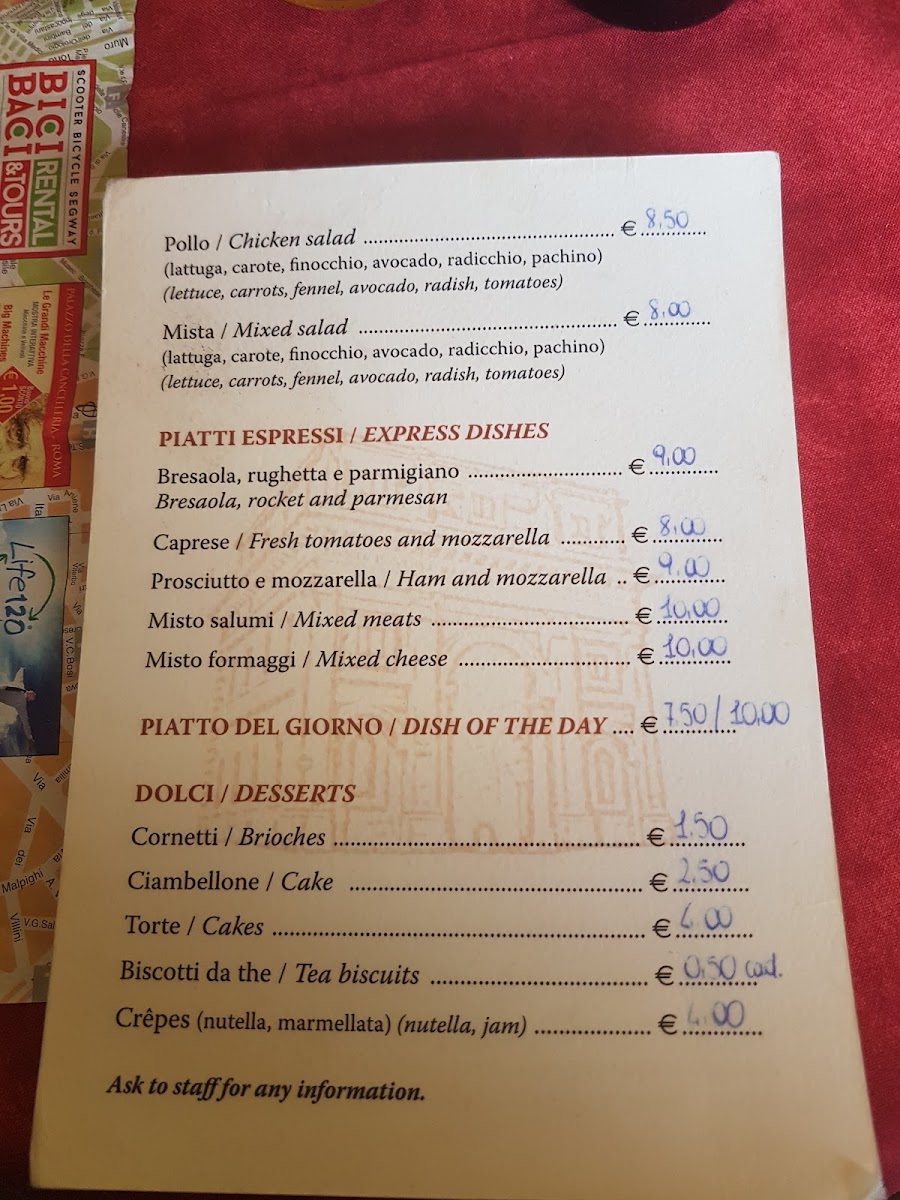 Pollo / Chicken salad ........ € 8,50
(lattuga, carote, finocchio, avocado, radicchio, pachino)
(lettuce, carrots, fennel, avocado, radish, tomatoes)
Mista / Mixed salad ........ € 8,00
(lattuga, carote, finocchio, avocado, radicchio, pachino)
(lettuce, carrots, fennel, avocado, radish, tomatoes)
PIATTI ESPRESSI / EXPRESS DISHES
Bresaola, rughetta e parmigiano ........ € 9,00
Bresaola, rocket and parmesan
Caprese / Fresh tomatoes and mozzarella ........ € 8,00
Prosciutto e mozzarella / Ham and mozzarella .. € 9,00
Misto salumi / Mixed meats ........ € 10,00
Misto formaggi / Mixed cheese ........ € 10,00
PIATTO DEL GIORNO / DISH OF THE DAY .... € 7,50 / 10,00
DOLCI / DESSERTS
Cornetti / Brioches ........ € 1,50
Ciambellone / Cake ........ € 2,50
Torte / Cakes ........ € 4,00
Biscotti da the / Tea biscuits ........ € 0,50 cad.
Crêpes (nutella, marmellata) (nutella, jam) ........ € 4,00
Ask to staff for any information.
SCOOTER BICYCLE SEGWAY
BICI RENTAL
BACI & TOURS
PALAZZO DELLA CANCELLERIA - ROMA
Le Grandi Macchine
MOSTRA INTERATTIVA
Big Machines
€ 1,00
Life 120
Muro
Via
Via
V.C.Bosi
Via
Via dei
Malpighi
Villini